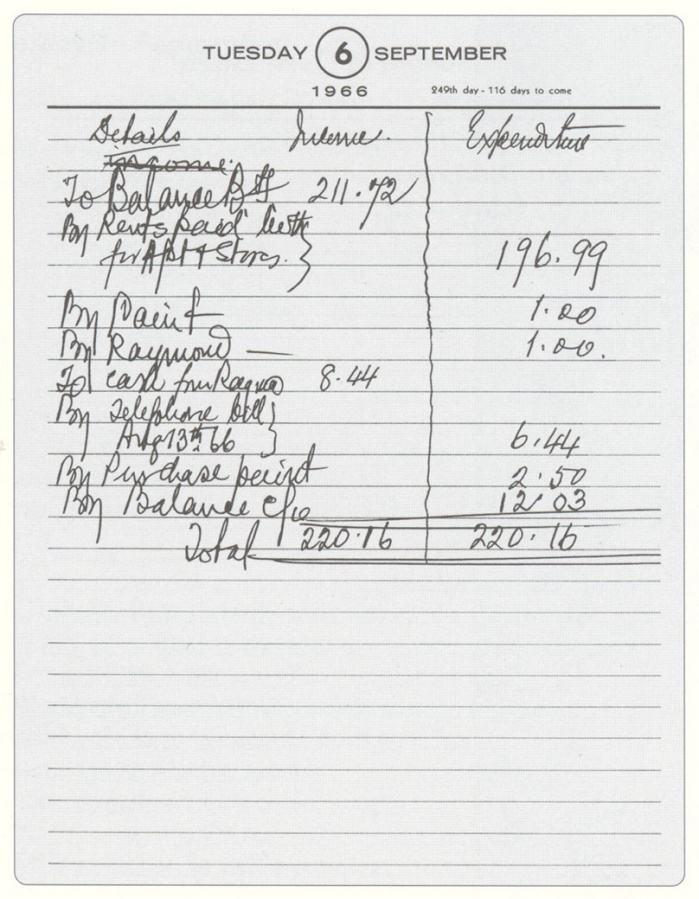 TUESDAY 6 SEPTEMBER
1966 249th day - 116 days to come
Details Income. Expenditure
Income.
To Balance B/f 211.72
By Rents paid both
for Apt & Stores. 196.99
By Paint 1.00
By Raymond — 1.00.
To cash from 8.44
By Telephone bill
Aug 13th 66 6.44
By Purchase paint 2.50
By Balance c/o 12.03
Total 220.16 220.16